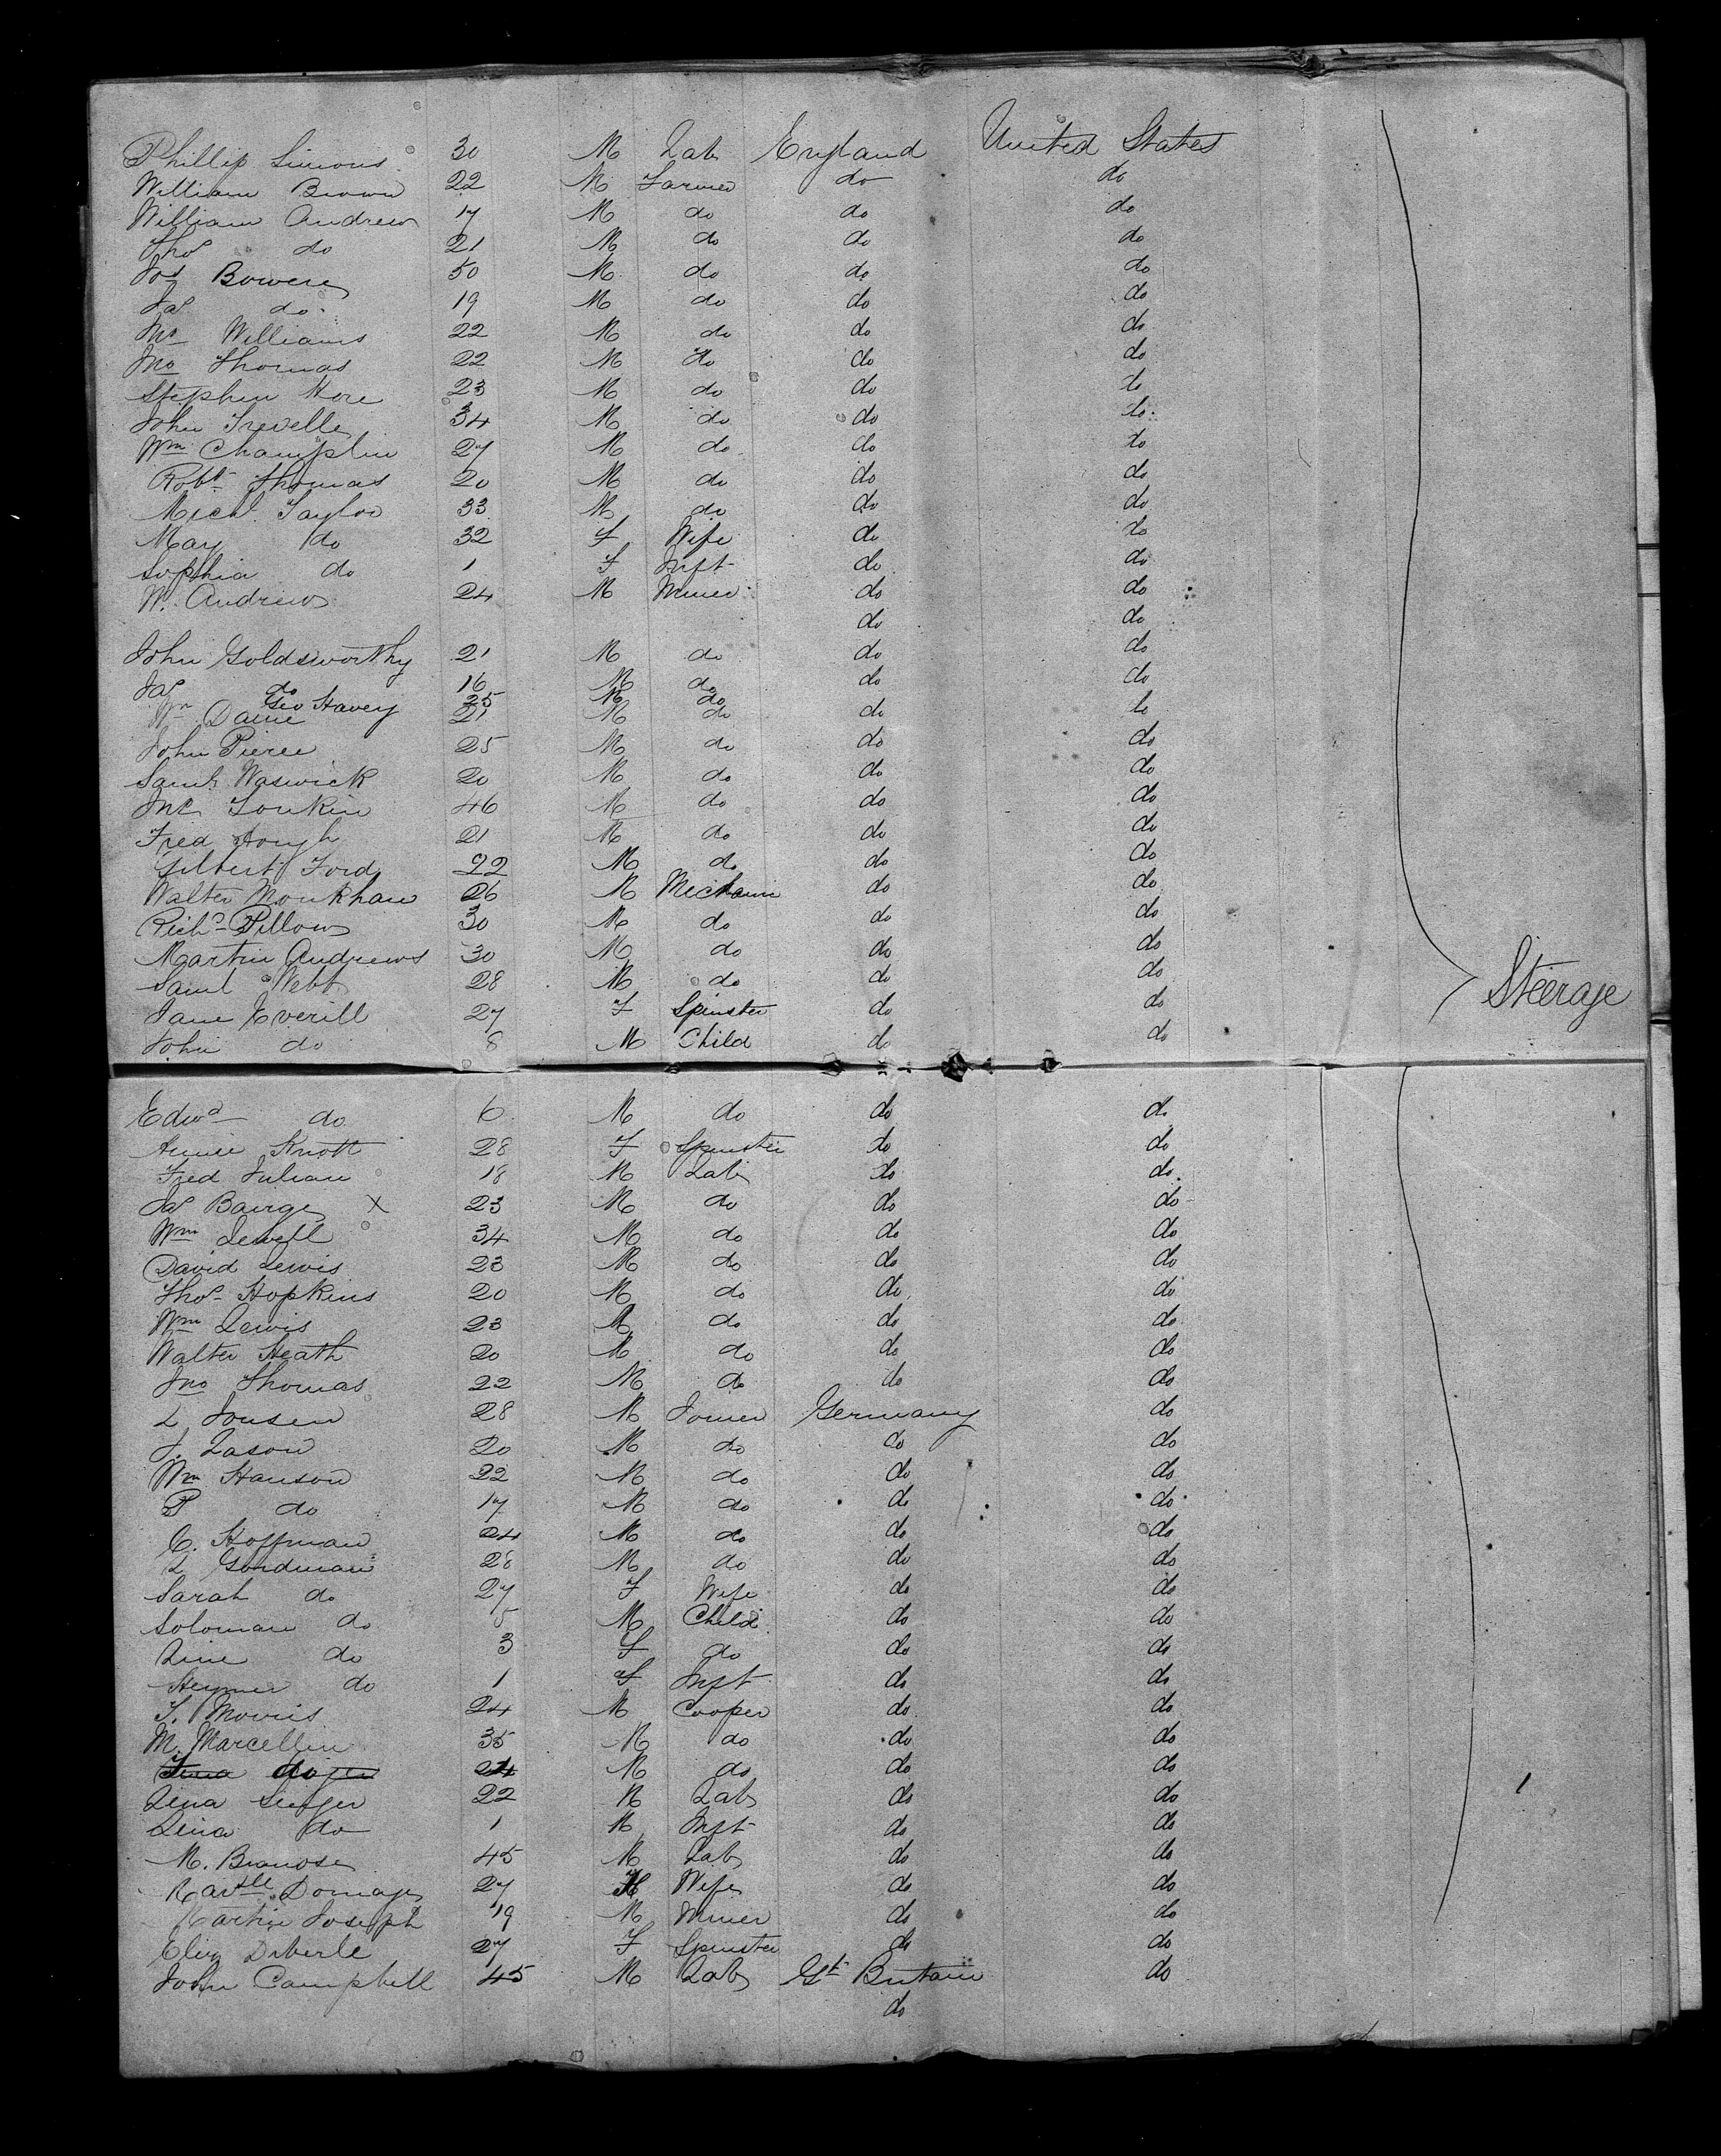 Phillip Simons 30 M Lab England United States
William Brown 22 M Farmer do do
William Andrew 17 M do do do
Thos do 21 M do do do
Jos Bowere 50 M do do do
Jas do 19 M do do do
Williams 22 M do do do
Jno Thomas 22 M do do do
Stephen Hore 23 M do do do
John Trevelle 34 M do do do
Wm Champlin 27 M do do do
Robt Thomas 20 M do do do
Michl Taylor 33 M do do do
Mary do 32 F Wife do do
Sophia do 1 F Inft do do
W. Andrews 24 M Miner do do
do do
John Goldsworthy 21 M do do do
Jas do 16 M do do do
Geo Havery 25 M do
Wm Dame 21 M do do do
John Pierce 25 M do do do
Saml Waswick 20 M do do do
Jno Lonkin 46 M do do do
Fred Hough 21 M do do do
Gilbert Ford 22 M do do do
Walter Monkhan 26 M Mechanic do do
Richd Pillows 30 M do do do
Martin Andrews 30 M do do do
Saml Webb 28 M do do do
Steerage
Jane Everill 27 F Spinster do do
John do 8 M Child do do
Edwd do 6 M do do do
Annie Knott 28 F Spinster do do
Fred Julian 18 M Lab do do
Jas Barge X 23 M do do do
Wm Sewell 34 M do do do
David Lewis 23 M do do do
Thos Hopkins 20 M do do do
Wm Lewis 23 M do do do
Walter Heath 20 M do do do
Jno Thomas 22 M do do do
L Jonsen 28 M Joiner Germany do
J. Lason 20 M do do do
Wm Hanson 22 M do do do
P do 17 M do do do
C. Hoffman 24 M do do do
L Gordman 28 M do do do
Sarah do 27 F Wife do do
Soloman do 5 M Child do do
Line do 3 F do do do
do 1 F Inft do do
T. Morris 24 M Cooper do do
M. Marcellin 35 M do do do
24 M do do do
Lena 22 M Lab do do
Lena do 1 M Inft do do
M. Branose 45 M Lab do do
Domage 27 Wife do do
Martin Joseph 19 M Miner do do
Eliz Diberle 27 F Spinster do do
John Campbell 45 M Lab Gt Britain do
do